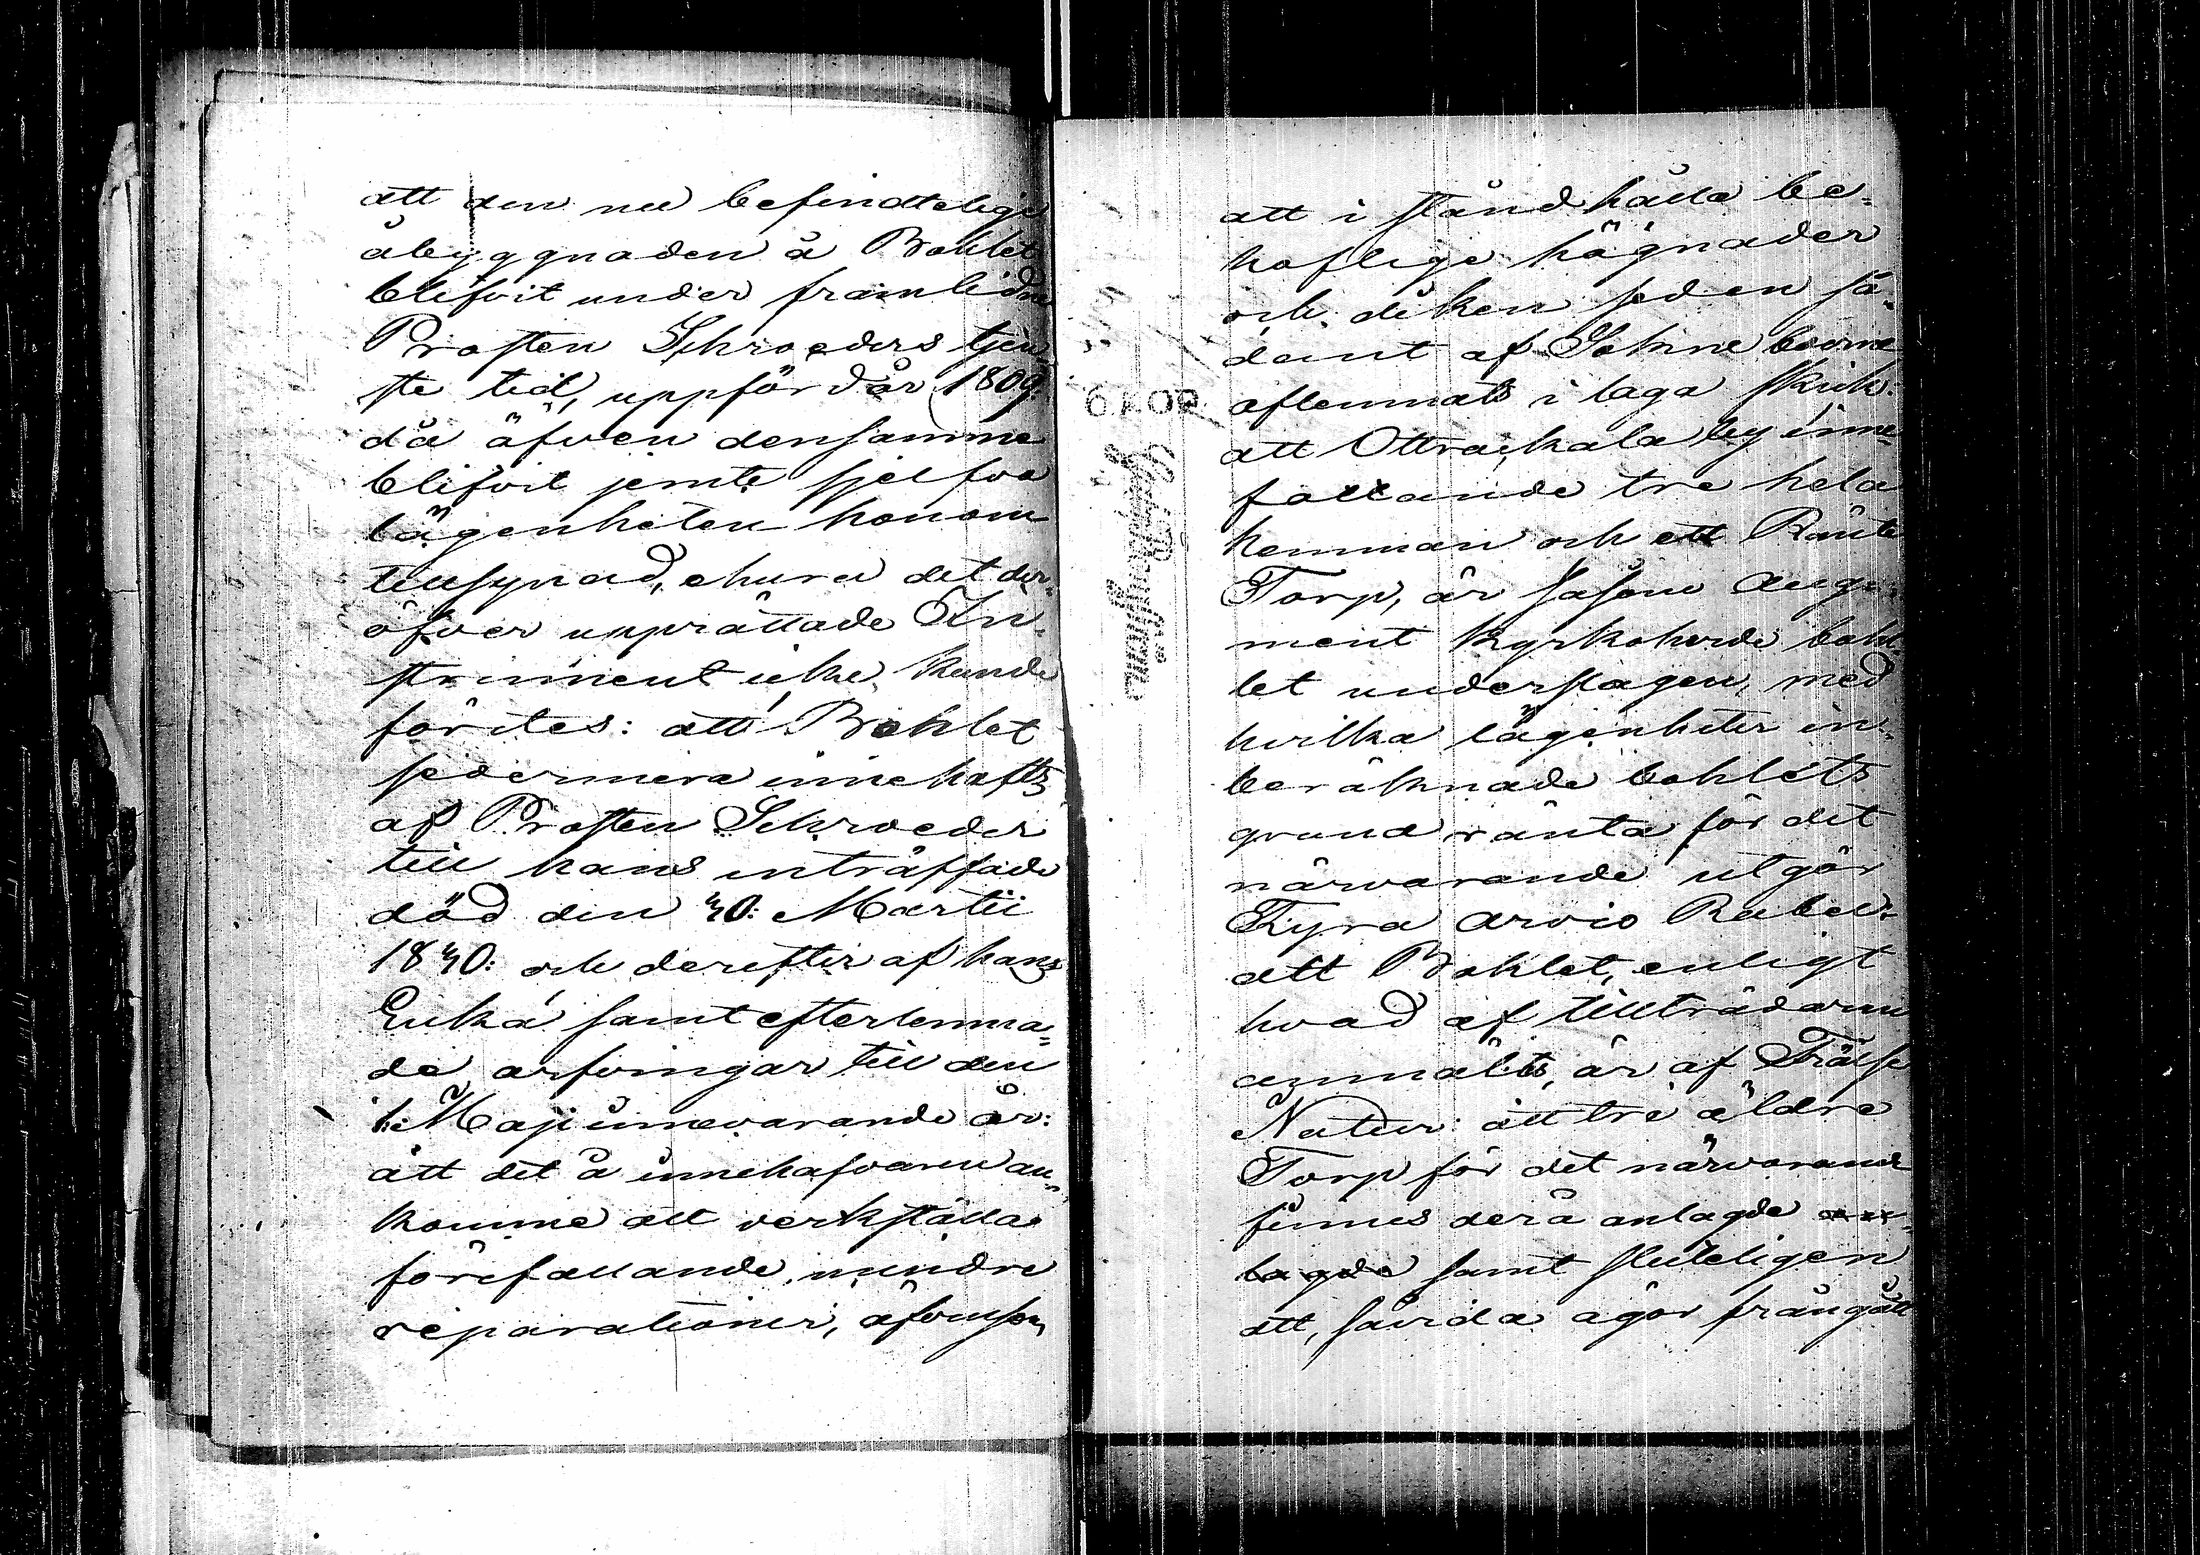 att den nu befindtelige
åbyggnaden å Bohlet
blifvit under framlidne
Prosten Schroeders tjen-
ste tid, uppförd år 1809:
då äfven densamma
blifvit jemte sjelfva
lägenheten honom
tillsynad, ehuru det der-
öfver upprättade In-
strument icke kunde
förites: att Bohlet
sedermera innehafts
af Prosten Schroeder
till hans inträffade
död den 30: Martii
1830: och derefter af hans
Enka samt efterlemna-
de arfvingar till den
1: Maji innevarande år:
att det å innehafvaren an-
komme att verkställa
förefallande mindre
reparationer, äfvensom
att i stånd hålla be-
höflige hägnader
och diken sedan så-
damt af
aflemnats i laga skick:
att Ottrackala by inne-
fattande tre hela
hemman och ett Ränte
Torp, är såsom Aug-
ment Kyrkoherde boh-
let underslagen, med
hvilka lägenheter in-
beräknade bohlets
grundränta för det
närvarande utgör
Fyra Rubel:
att Bohlet, enligt
hvad af tillträdaren
anmälts, är af Frälse
Natur: att tre äldre
Torp för det närvarande
finnes derå anlagde an-
lagde samt sluteligen
att, såvida ägor frångått